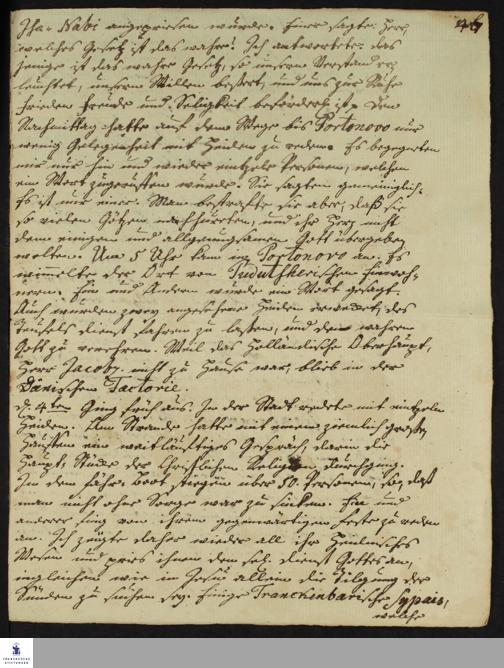 46
Isa-Nabi angepriesen würde. Einer sagte: Herr,
welches Gesetz ist das wahre? Ich antwortete: das
jenige ist das wahre Gesetz, so unsern Verstand er-
leuchtet, unsern Willen bessert, und uns zur Ruhe
Frieden Freude und Seligkeit befördert ist. Den
Nachmittag hatte auf dem Wege bis Portonovo nur
wenig Gelegenheit mit Heiden zu reden. Es begegneten
mir nur hin und wieder einzele Personen, welchen
ein Wort zugeruffen wurde. Sie sagten gemeiniglich:
Es ist nur einer. Man bestrafte sie aber, daß sie
so vielen Götzen nachhureten, und ihr Herz nicht
dem einigen und allgenugsamen Gott übergeben
wolten. Um 5 Uhr kam in Portonovo an. Es
wimmelte der Ort von Einwoh-
nern. Ein und Andern wurde ein Wort gesagt.
Auch wurden zwey angesehene Heiden ermahnet, des
Teufels Dienst fahren zu lassen, und den wahren
Gott zu verehren. Weil das Holländische Oberhaupt,
Herr Jacoby, nicht zu Hause war, blieb in der
Dänischen Factorie.
d. 4ten Ging früh aus. In der Stadt redete mit einzeln
Heiden. Am Strande hatte mit einem ziemlich grossen
Hauffen ein weitläuftiges Gespräch, darin die
Haupt Stücke der Christlichen Religion durchging.
In dem Fahr-boot stiegen über 50 Personen, so, daß
man nicht ohne Sorge war zu sinken. Ein und
anderer fing von ihrem gegenwärtigen Feste zu reden
an. Ich zeugte daher wieder all ihr Heidnisches
Wesen und pries ihnen den sel. Dienst Gottes an,
ingleichen wie in Jesu allein die Tilgung der
Sünden zu suchen sey. Einige Tranckenbarische Sypais,
welche
FRANCKESCHE
STIFTUNGEN